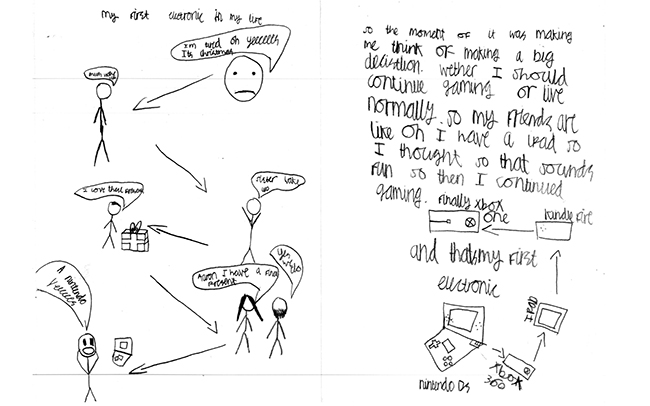 my first electronic in my live
I'm tired oh yeeeees
Its christmas
mum
I love these
sister wake
up
Aaron I have a final
present
A nintendo
yeeeees
so the moment of it was making
me think of making a big
decistion. wether I should
continue gaming or live
normally. so my friends are
like oh I have a ipad so
I thought so that sounds
fun so then I continued
gaming. finally xbox
one
kindle fire
and thats my first
electronic
IPAD
xbox
360
nintendo Ds